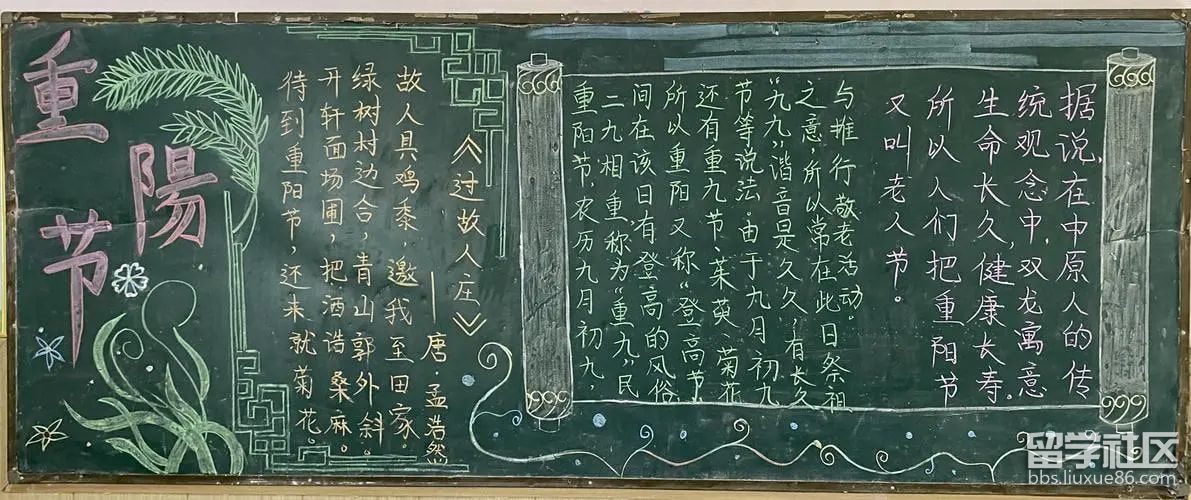 重陽节
《过故人庄》
——唐·孟浩然
故人具鸡黍，邀我至田家。
绿树村边合，青山郭外斜。
开轩面场圃，把酒浩桑麻。
待到重阳节，还来就菊花。
重阳节，农历九月初九，
二九相重，称为“重九”，民
间在该日有登高的风俗
所以重阳又称“登高节”
还有重九节、茱萸、菊花
节等说法.由于九月初九
“九九”谐音是久久，有长久
之意，所以常在此日祭祖
与推行敬老活动。
据说，在中原人的传
统观念中，双龙寓意
生命长久，健康长寿。
所以人们把重阳节
又叫老人节。
留学社区
bbs.liuxue86.com